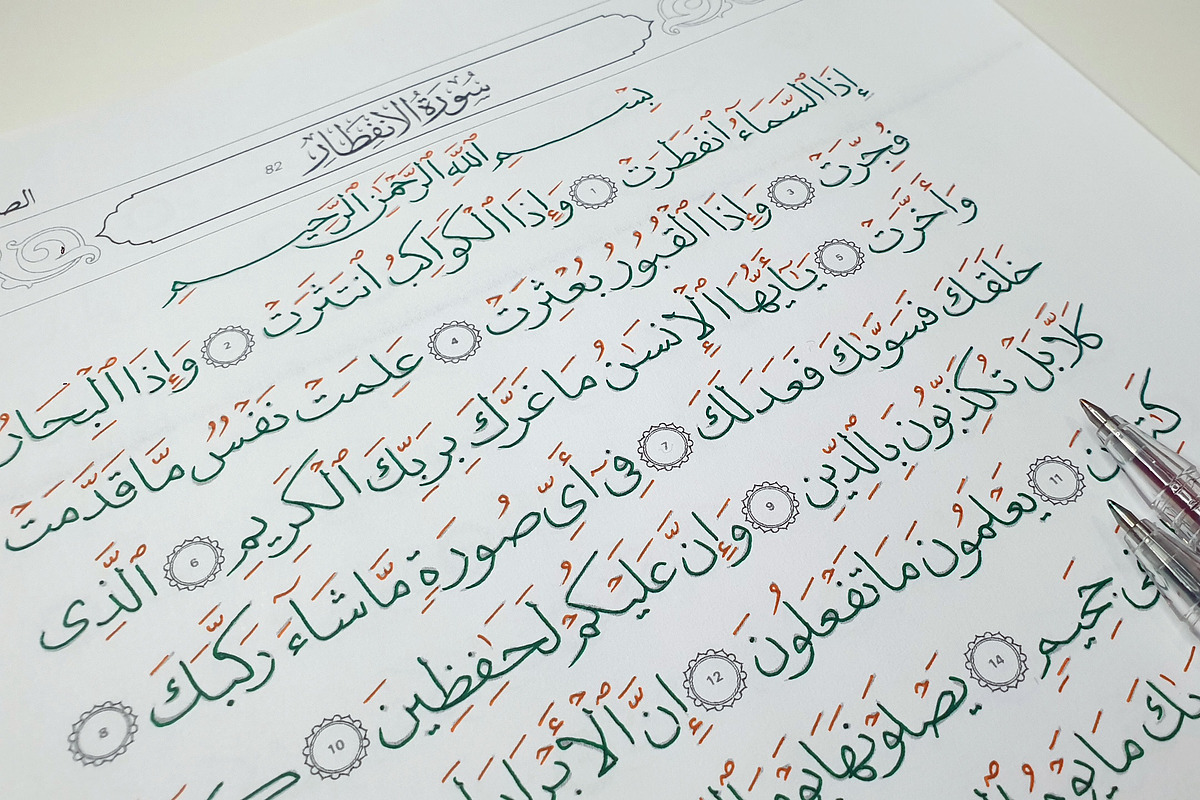 الص
سُورَةُ الانفِطَارِ 82
بِسْمِ ٱللَّهِ ٱلرَّحْمَٰنِ ٱلرَّحِيمِ
إِذَا ٱلسَّمَآءُ ٱنفَطَرَتْ 1 وَإِذَا ٱلْكَوَاكِبُ ٱنتَثَرَتْ 2 وَإِذَا ٱلْبِحَارُ
فُجِّرَتْ 3 وَإِذَا ٱلْقُبُورُ بُعْثِرَتْ 4 عَلِمَتْ نَفْسٌ مَّا قَدَّمَتْ
وَأَخَّرَتْ 5 يَٰٓأَيُّهَا ٱلْإِنسَٰنُ مَا غَرَّكَ بِرَبِّكَ ٱلْكَرِيمِ 6 ٱلَّذِى
خَلَقَكَ فَسَوَّىٰكَ فَعَدَلَكَ 7 فِىٓ أَىِّ صُورَةٍ مَّا شَآءَ رَكَّبَكَ 8
كَلَّا بَلْ تُكَذِّبُونَ بِٱلدِّينِ 9 وَإِنَّ عَلَيْكُمْ لَحَٰفِظِينَ 10
11 يَعْلَمُونَ مَا تَفْعَلُونَ 12 إِنَّ ٱلْأَبْرَارَ
جَحِيمٍ 14 يَصْلَوْنَهَا